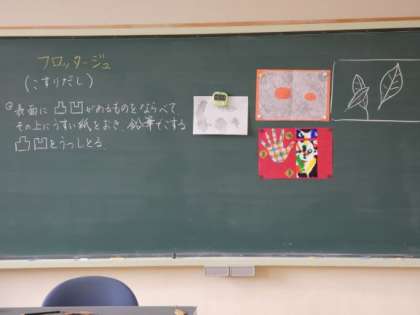 フロッタージュ
(こすりだし)
◎表面に凸凹があるものをならべて
その上にうすい紙をおき、鉛筆でこする
凸凹をうつしとる